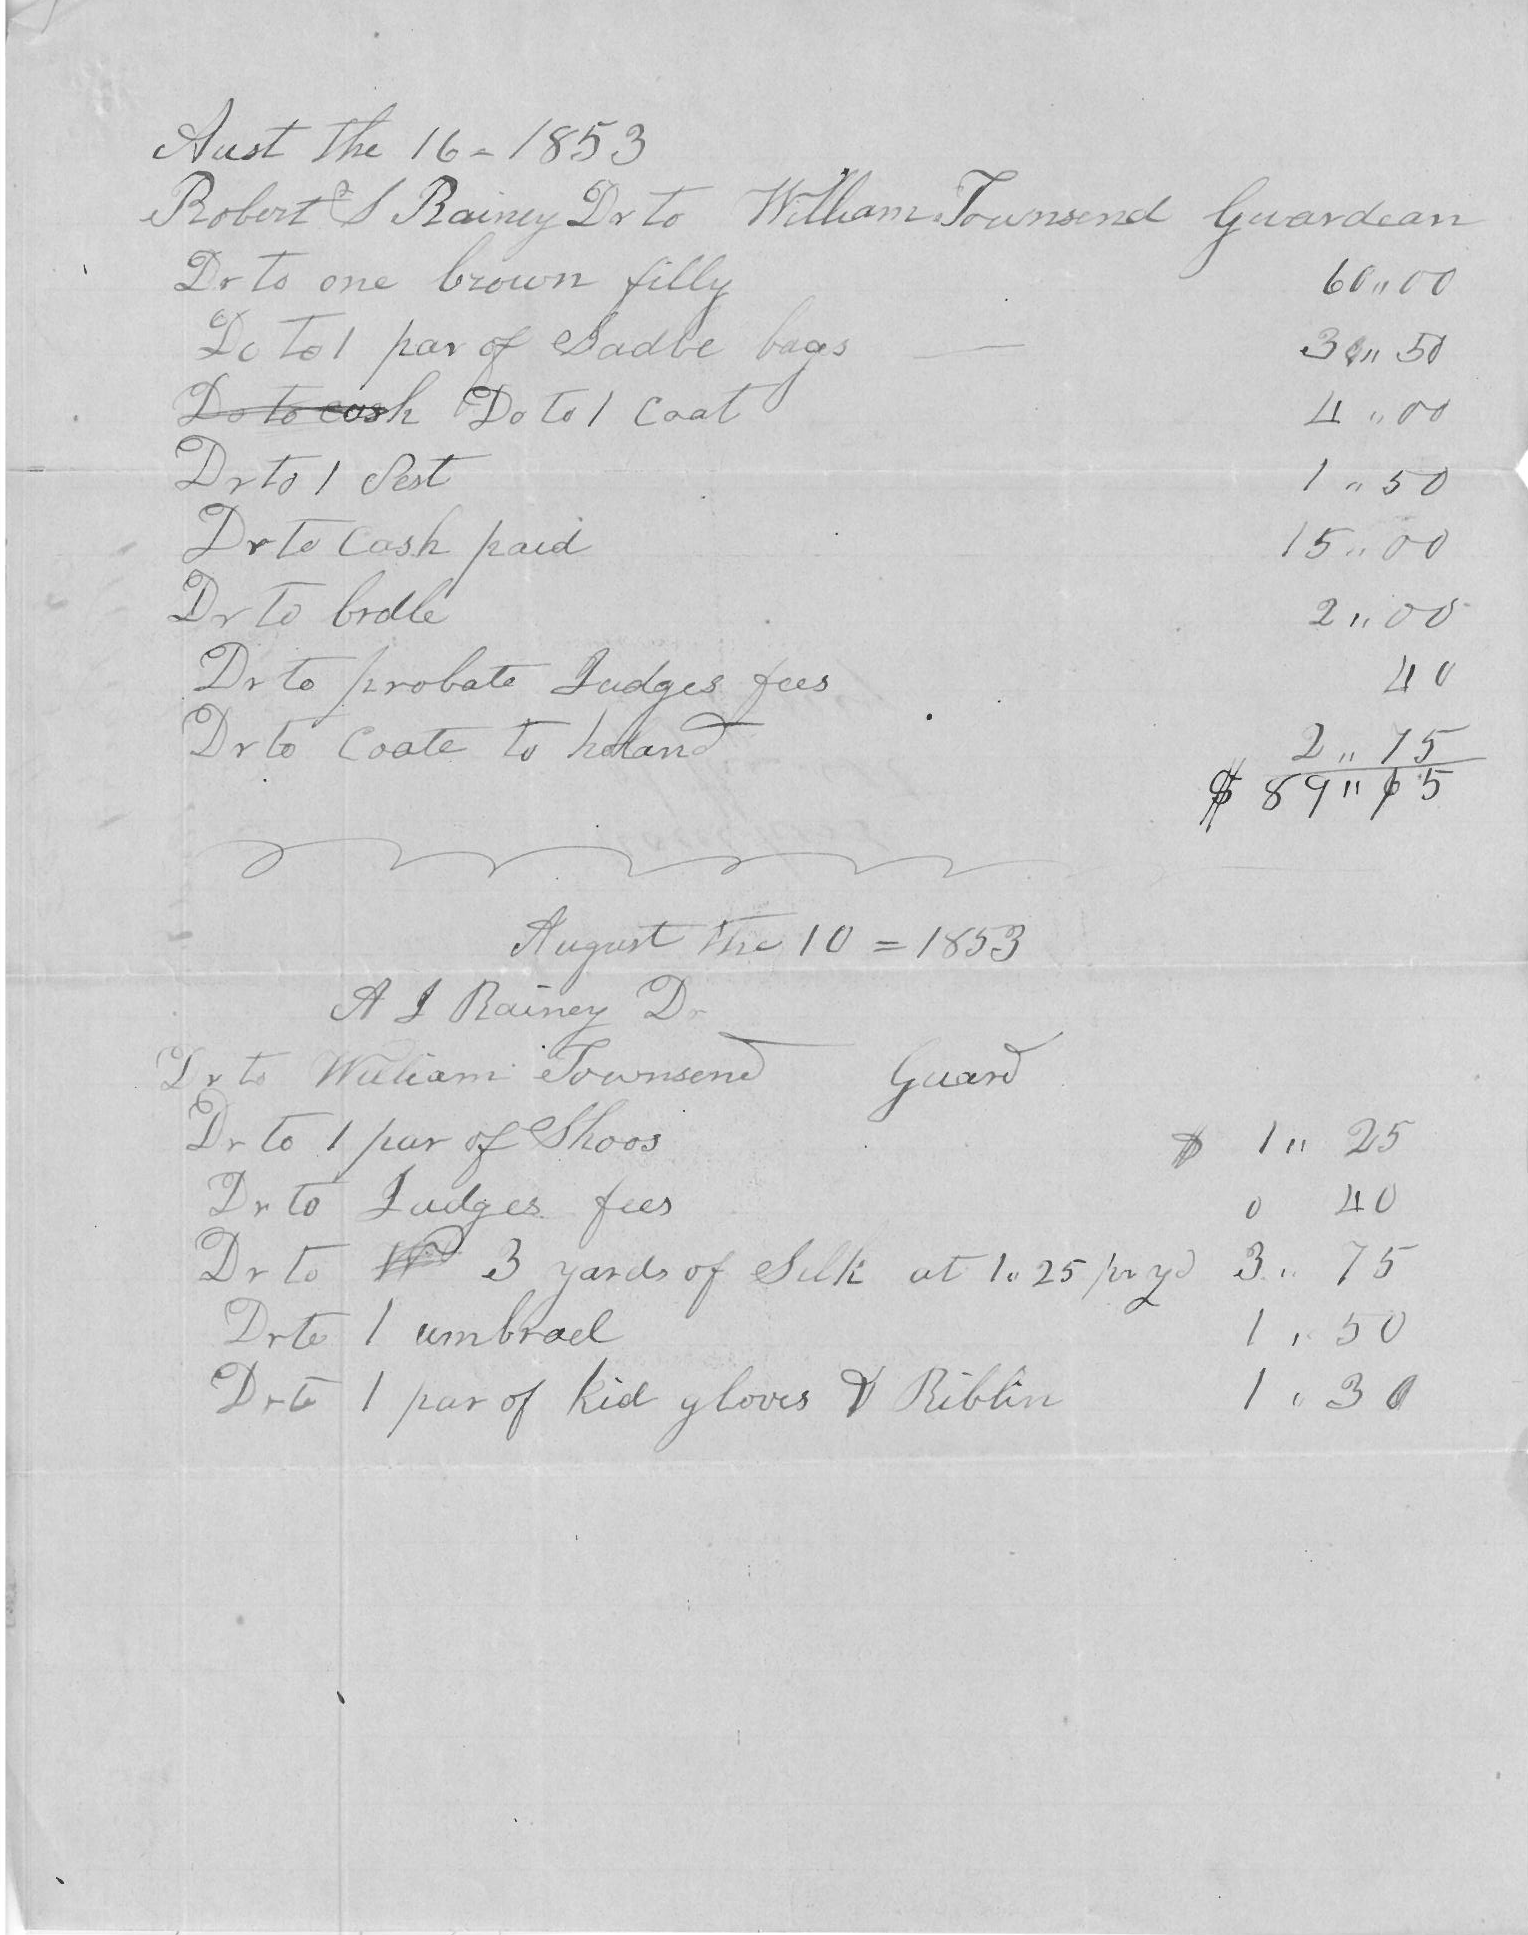 Aust the 16 = 1853
Robert S Rainey Dr to William Townsend Guardean
Dr to one brown filly 60 " 00
Do to 1 par of Sadle bags — 3 " 50
Do to cash Do to 1 Coat 4 " 00
Dr to 1 Vest 1 " 50
Dr to Cash paid 15 " 00
Dr to brdle 2 " 00
Dr to probate Judges fees 40
Dr to Coate to 2 " 75
$ 89 " 15
August the 10 = 1853
A J Rainey Dr
Dr to William Townsend Guard
Dr to 1 par of Shoos $ 1 " 25
Dr to Judges fees 0 40
Dr to 3 yards of Silk at 1 " 25 pr yd 3 " 75
Dr to 1 umbrael 1 " 50
Dr to 1 par of kid gloves & Ribbin 1 " 30